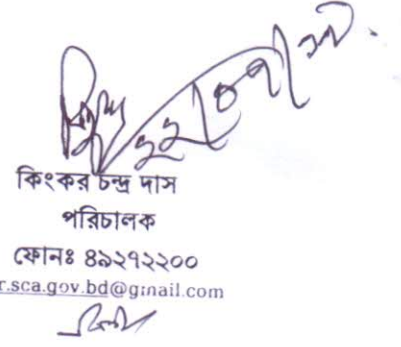 কিংকর চন্দ্র দাস
পরিচালক
ফোনঃ ৪৯২৭২২০০
r.sca.gov.bd@gmail.com